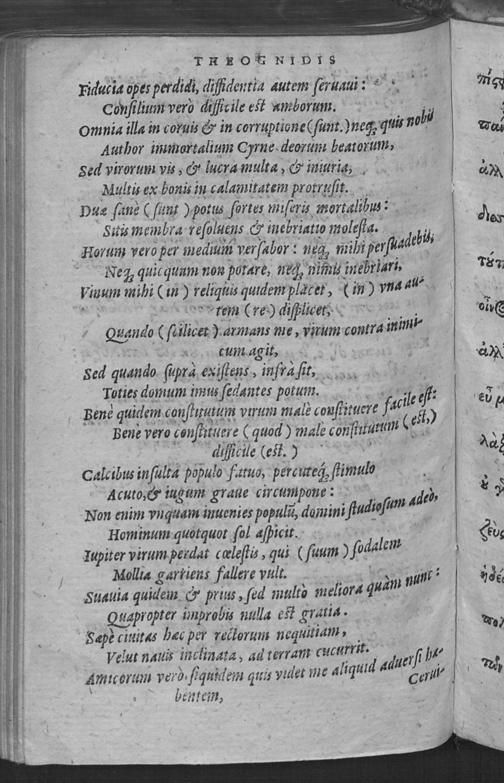 THEOGNIDIS
Fiducia opes perdidi, diffidentia autem seruaui:
Consilium verò difficile est amborum.
Omnia illa in coruis & in corruptione (sunt.) neq, quis nobis
Author immortalium Cyrne deorum beatorum,
Sed virorum vis, & lucra multa, & iniuria,
Multis ex bonis in calamitatem protrusit.
Duæ sanè (sunt) potus sortes miseris mortalibus:
Sitis membra resoluens & inebriatio molesta.
Horum vero per medium versabor: neq, mihi persuadebis,
Neq, quicquam non potare, neq, nimis inebriari,
Vinum mihi (in) reliquis quidem placet, (in) vna au-
tem (re) displicet,
Quando (scilicet) armans me, virum contra inimi-
cum agit,
Sed quando suprà existens, infrà sit,
Toties domum imus sedantes potum.
Benè quidem constitutum virum malè constituere facile est:
Benè vero constituere (quod) malè constitutum (est,)
difficile (est.)
Calcibus insulta populo fatuo, percuteq, stimulo
Acuto, & iugum graue circumpone:
Non enim vnquam inuenies populũ, domini studiosum adeò,
Hominum quotquot sol aspicit.
Iupiter virum perdat cœlestis, qui (suum) sodalem
Mollia garriens fallere vult.
Suauia quidem & prius, sed multò meliora quàm nunc:
Quapropter improbis nulla est gratia.
Sæpè ciuitas hæc per rectorum nequitiam,
Velut nauis inclinata, ad terram cucurrit.
Amicorum verò siquidem quis videt me aliquid aduersi ha-
bentem,
Cerui-